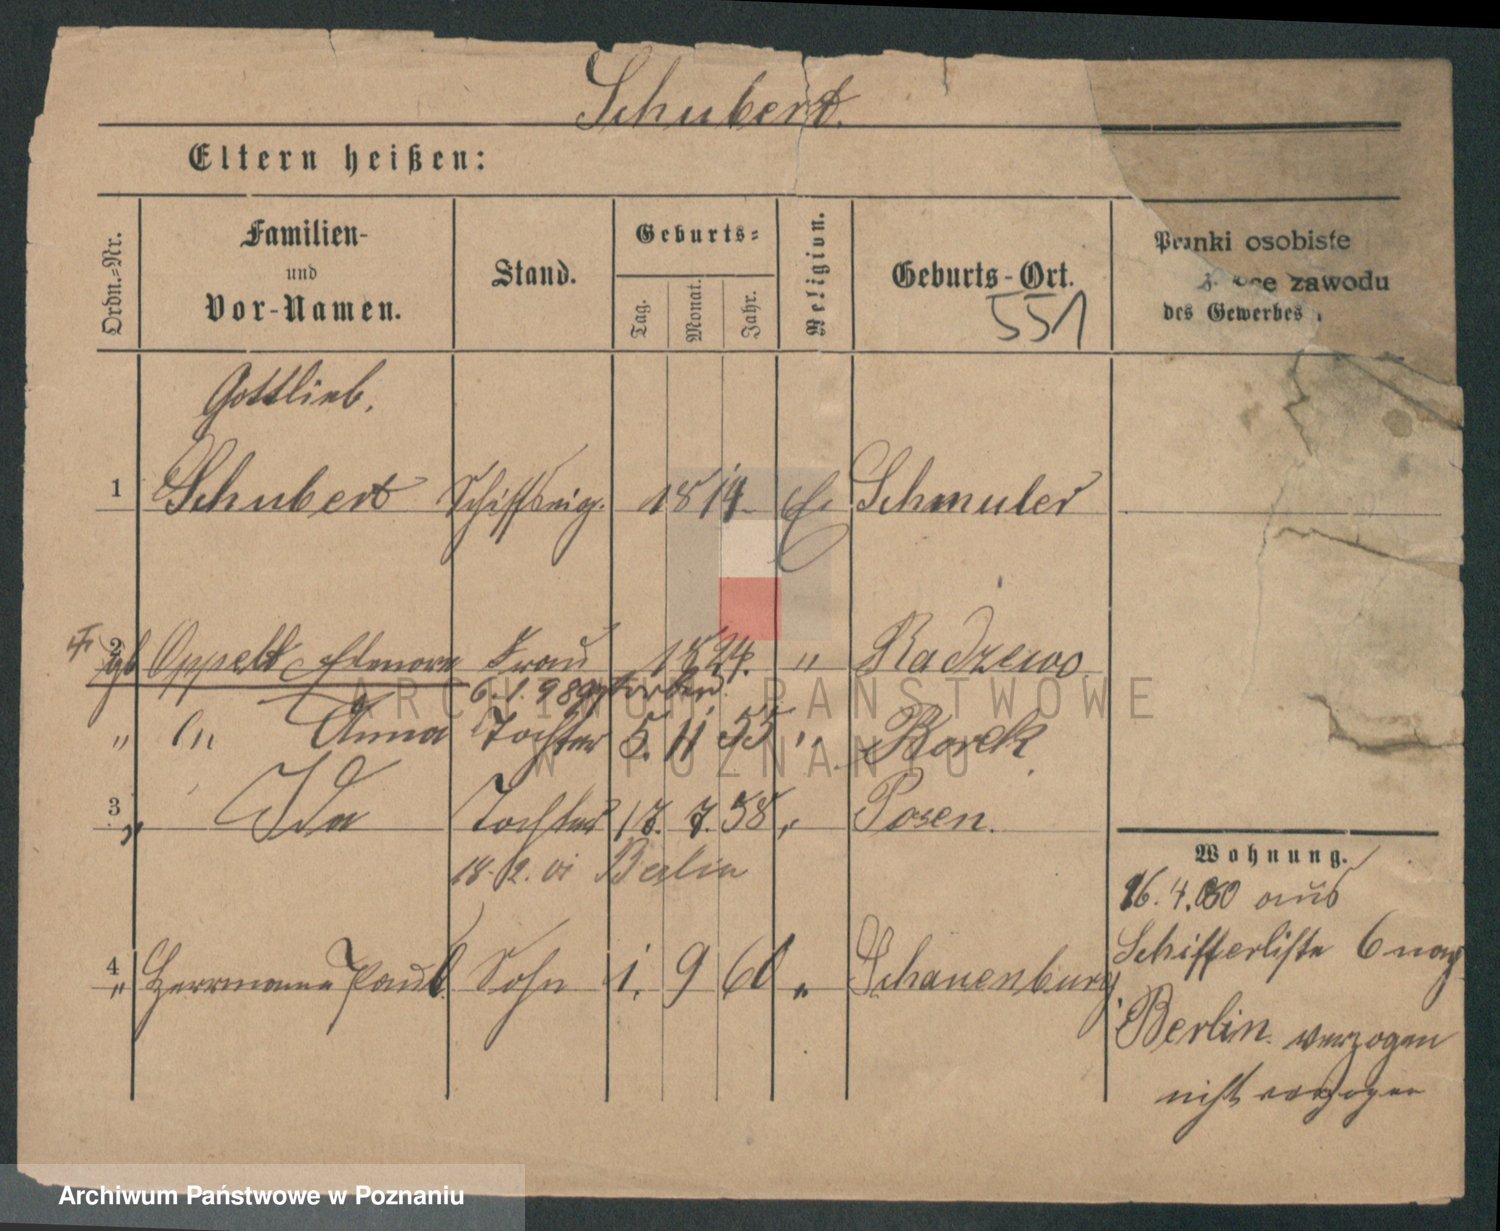 Schubert.
Eltern heißen:
Ordn.-Nr.
Familien-
und
Vor-Namen.
Stand.
Geburts-
Tag.
Monat.
Jahr.
Religion.
Geburts-Ort.
551
osobiste
zawodu
des Gewerbes
Gottlieb.
1 Schubert Schiffseig. 1814 Schmuler
2 gb Oppelt Elenore Frau 1824. " Radzewo
6.1.98 gestorben
" Anna Tochter 5. 11 55 " Borek
3 " Ida Tochter 17. 7. 58 " Posen.
18. 2. 01 Berlin
4 " Herrmann Paul Sohn 1. 9 60 " Schauenburg
Wohnung.
16. 4. aus
Schifferliste 6 nach
Berlin verzogen
nicht verzogen
ARCHIWUM PAŃSTWOWE
W POZNANIU
Archiwum Państwowe w Poznaniu